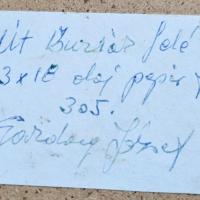 Út Buzsák felé
3 x 1E olaj papír
305.
Gárdony József